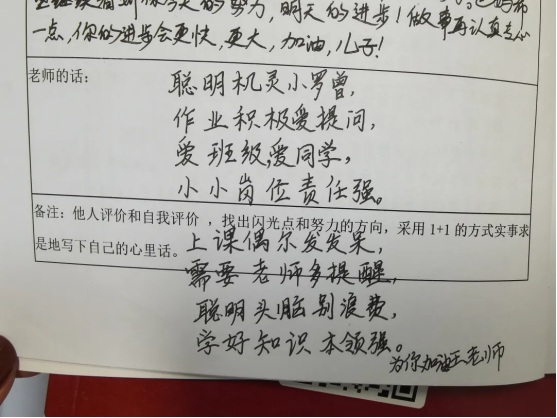 你今天的努力,明天的进步!做事再认真专心
一点,你的进步会更快,更大,加油,儿子!
老师的话:
聪明机灵小罗曾,
作业积极爱提问,
爱班级,爱同学,
小小岗位责任强。
备注:他人评价和自我评价,找出闪光点和努力的方向,采用1+1的方式实事求
是地写下自己的心里话。
上课偶尔发发呆,
需要老师多提醒,
聪明头脑别浪费,
学好知识本领强。
为你加油王老师